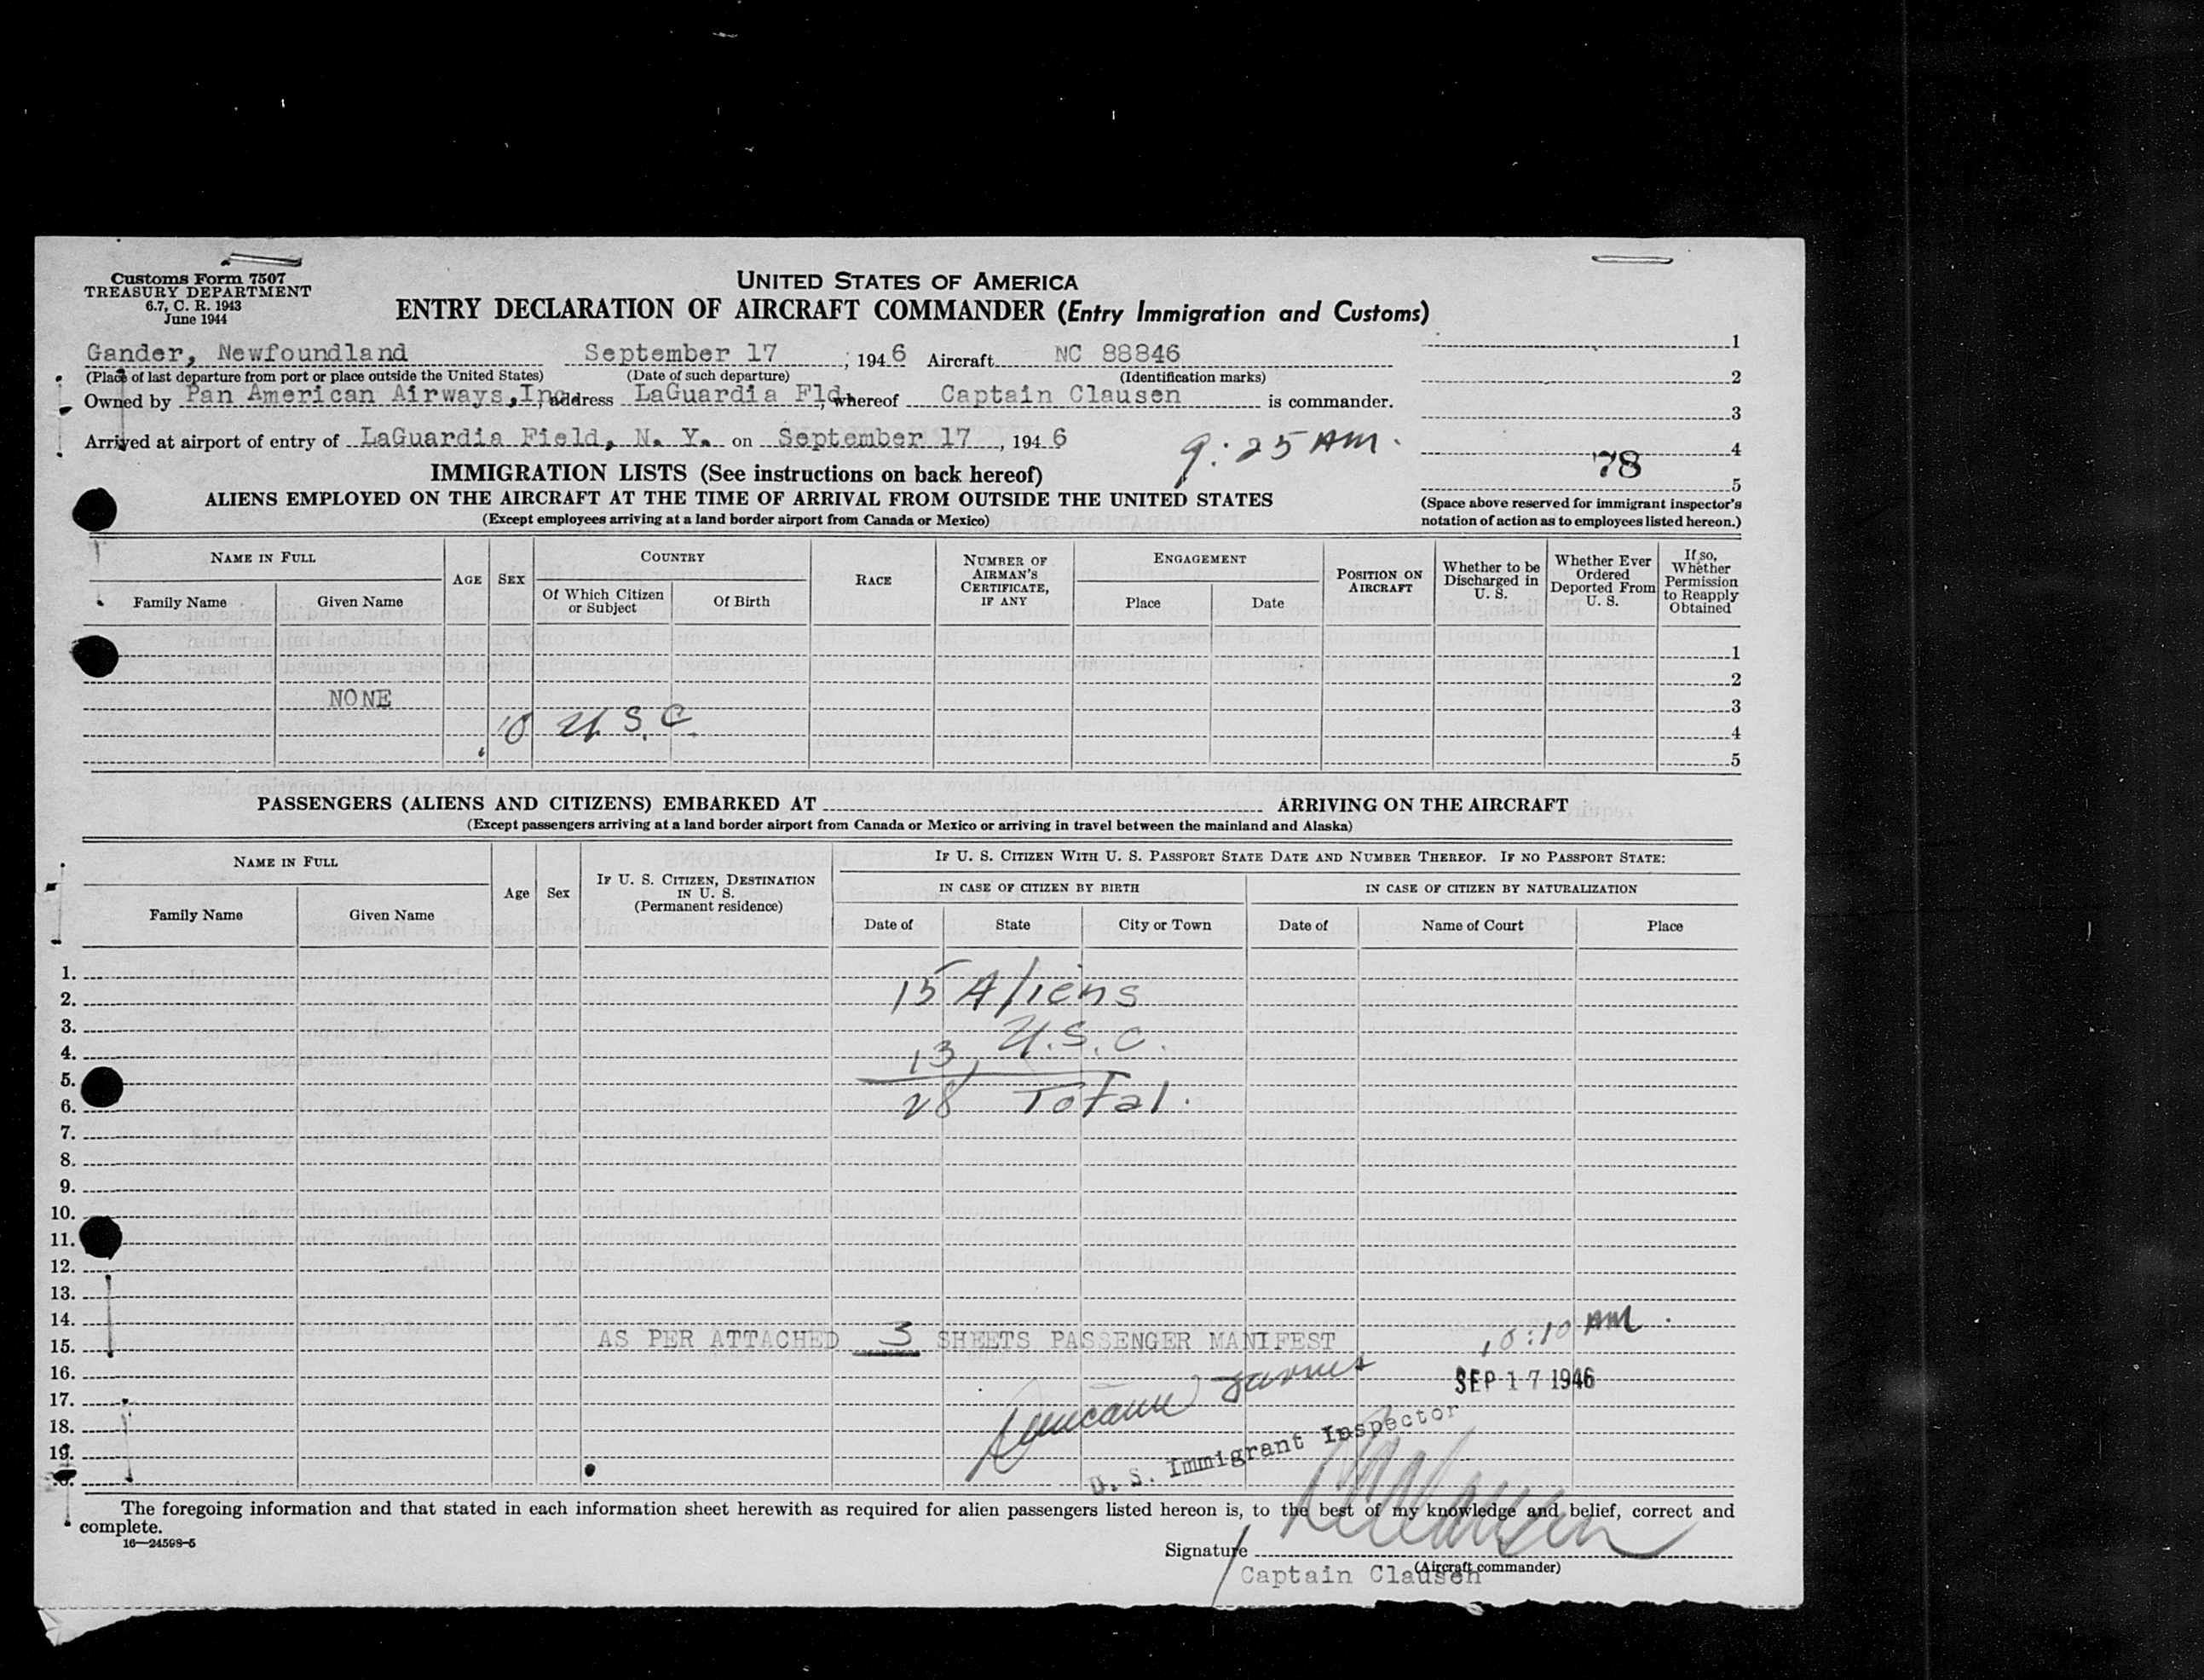 Customs Form 7507
TREASURY DEPARTMENT
6.7, C. R. 1943
June 1944
UNITED STATES OF AMERICA
ENTRY DECLARATION OF AIRCRAFT COMMANDER (Entry Immigration and Customs)
Gander, Newfoundland September 17, 1946 Aircraft NC 88846
(Place of last departure from port or place outside the United States) (Date of such departure) (Identification marks)
Owned by Pan American Airways, Inc, address LaGuardia Fld, whereof Captain Clausen is commander.
Arrived at airport of entry of LaGuardia Field, N. Y. on September 17, 1946
9:25 AM.
1
2
3
4
78
5
(Space above reserved for immigrant inspector's
notation of action as to employees listed hereon.)
IMMIGRATION LISTS (See instructions on back hereof)
ALIENS EMPLOYED ON THE AIRCRAFT AT THE TIME OF ARRIVAL FROM OUTSIDE THE UNITED STATES
(Except employees arriving at a land border airport from Canada or Mexico)
NAME IN FULL
Family Name
Given Name
AGE
SEX
COUNTRY
Of Which Citizen or Subject
Of Birth
RACE
NUMBER OF AIRMAN'S CERTIFICATE, IF ANY
ENGAGEMENT
Place
Date
POSITION ON AIRCRAFT
Whether to be Discharged in U. S.
Whether Ever Ordered Deported From U. S.
If so, Whether Permission to Reapply Obtained
1
2
NONE
3
10 U.S.C.
4
5
PASSENGERS (ALIENS AND CITIZENS) EMBARKED AT ARRIVING ON THE AIRCRAFT
(Except passengers arriving at a land border airport from Canada or Mexico or arriving in travel between the mainland and Alaska)
NAME IN FULL
Family Name
Given Name
Age
Sex
IF U. S. CITIZEN, DESTINATION IN U. S.
(Permanent residence)
IF U. S. CITIZEN WITH U. S. PASSPORT STATE DATE AND NUMBER THEREOF. IF NO PASSPORT STATE:
IN CASE OF CITIZEN BY BIRTH
IN CASE OF CITIZEN BY NATURALIZATION
Date of
State
City or Town
Date of
Name of Court
Place
1.
2. 15 Aliens
3.
4. 13 U.S.C.
5.
6. 28 Total.
7.
8.
9.
10.
11.
12.
13.
14.
15. AS PER ATTACHED 3 SHEETS PASSENGER MANIFEST 10:10 AM.
16. SEP 17 1946
17.
18.
19.
U. S. Immigrant Inspector
The foregoing information and that stated in each information sheet herewith as required for alien passengers listed hereon is, to the best of my knowledge and belief, correct and
complete.
16—24598-5
Signature
(Aircraft commander)
Captain Clausen